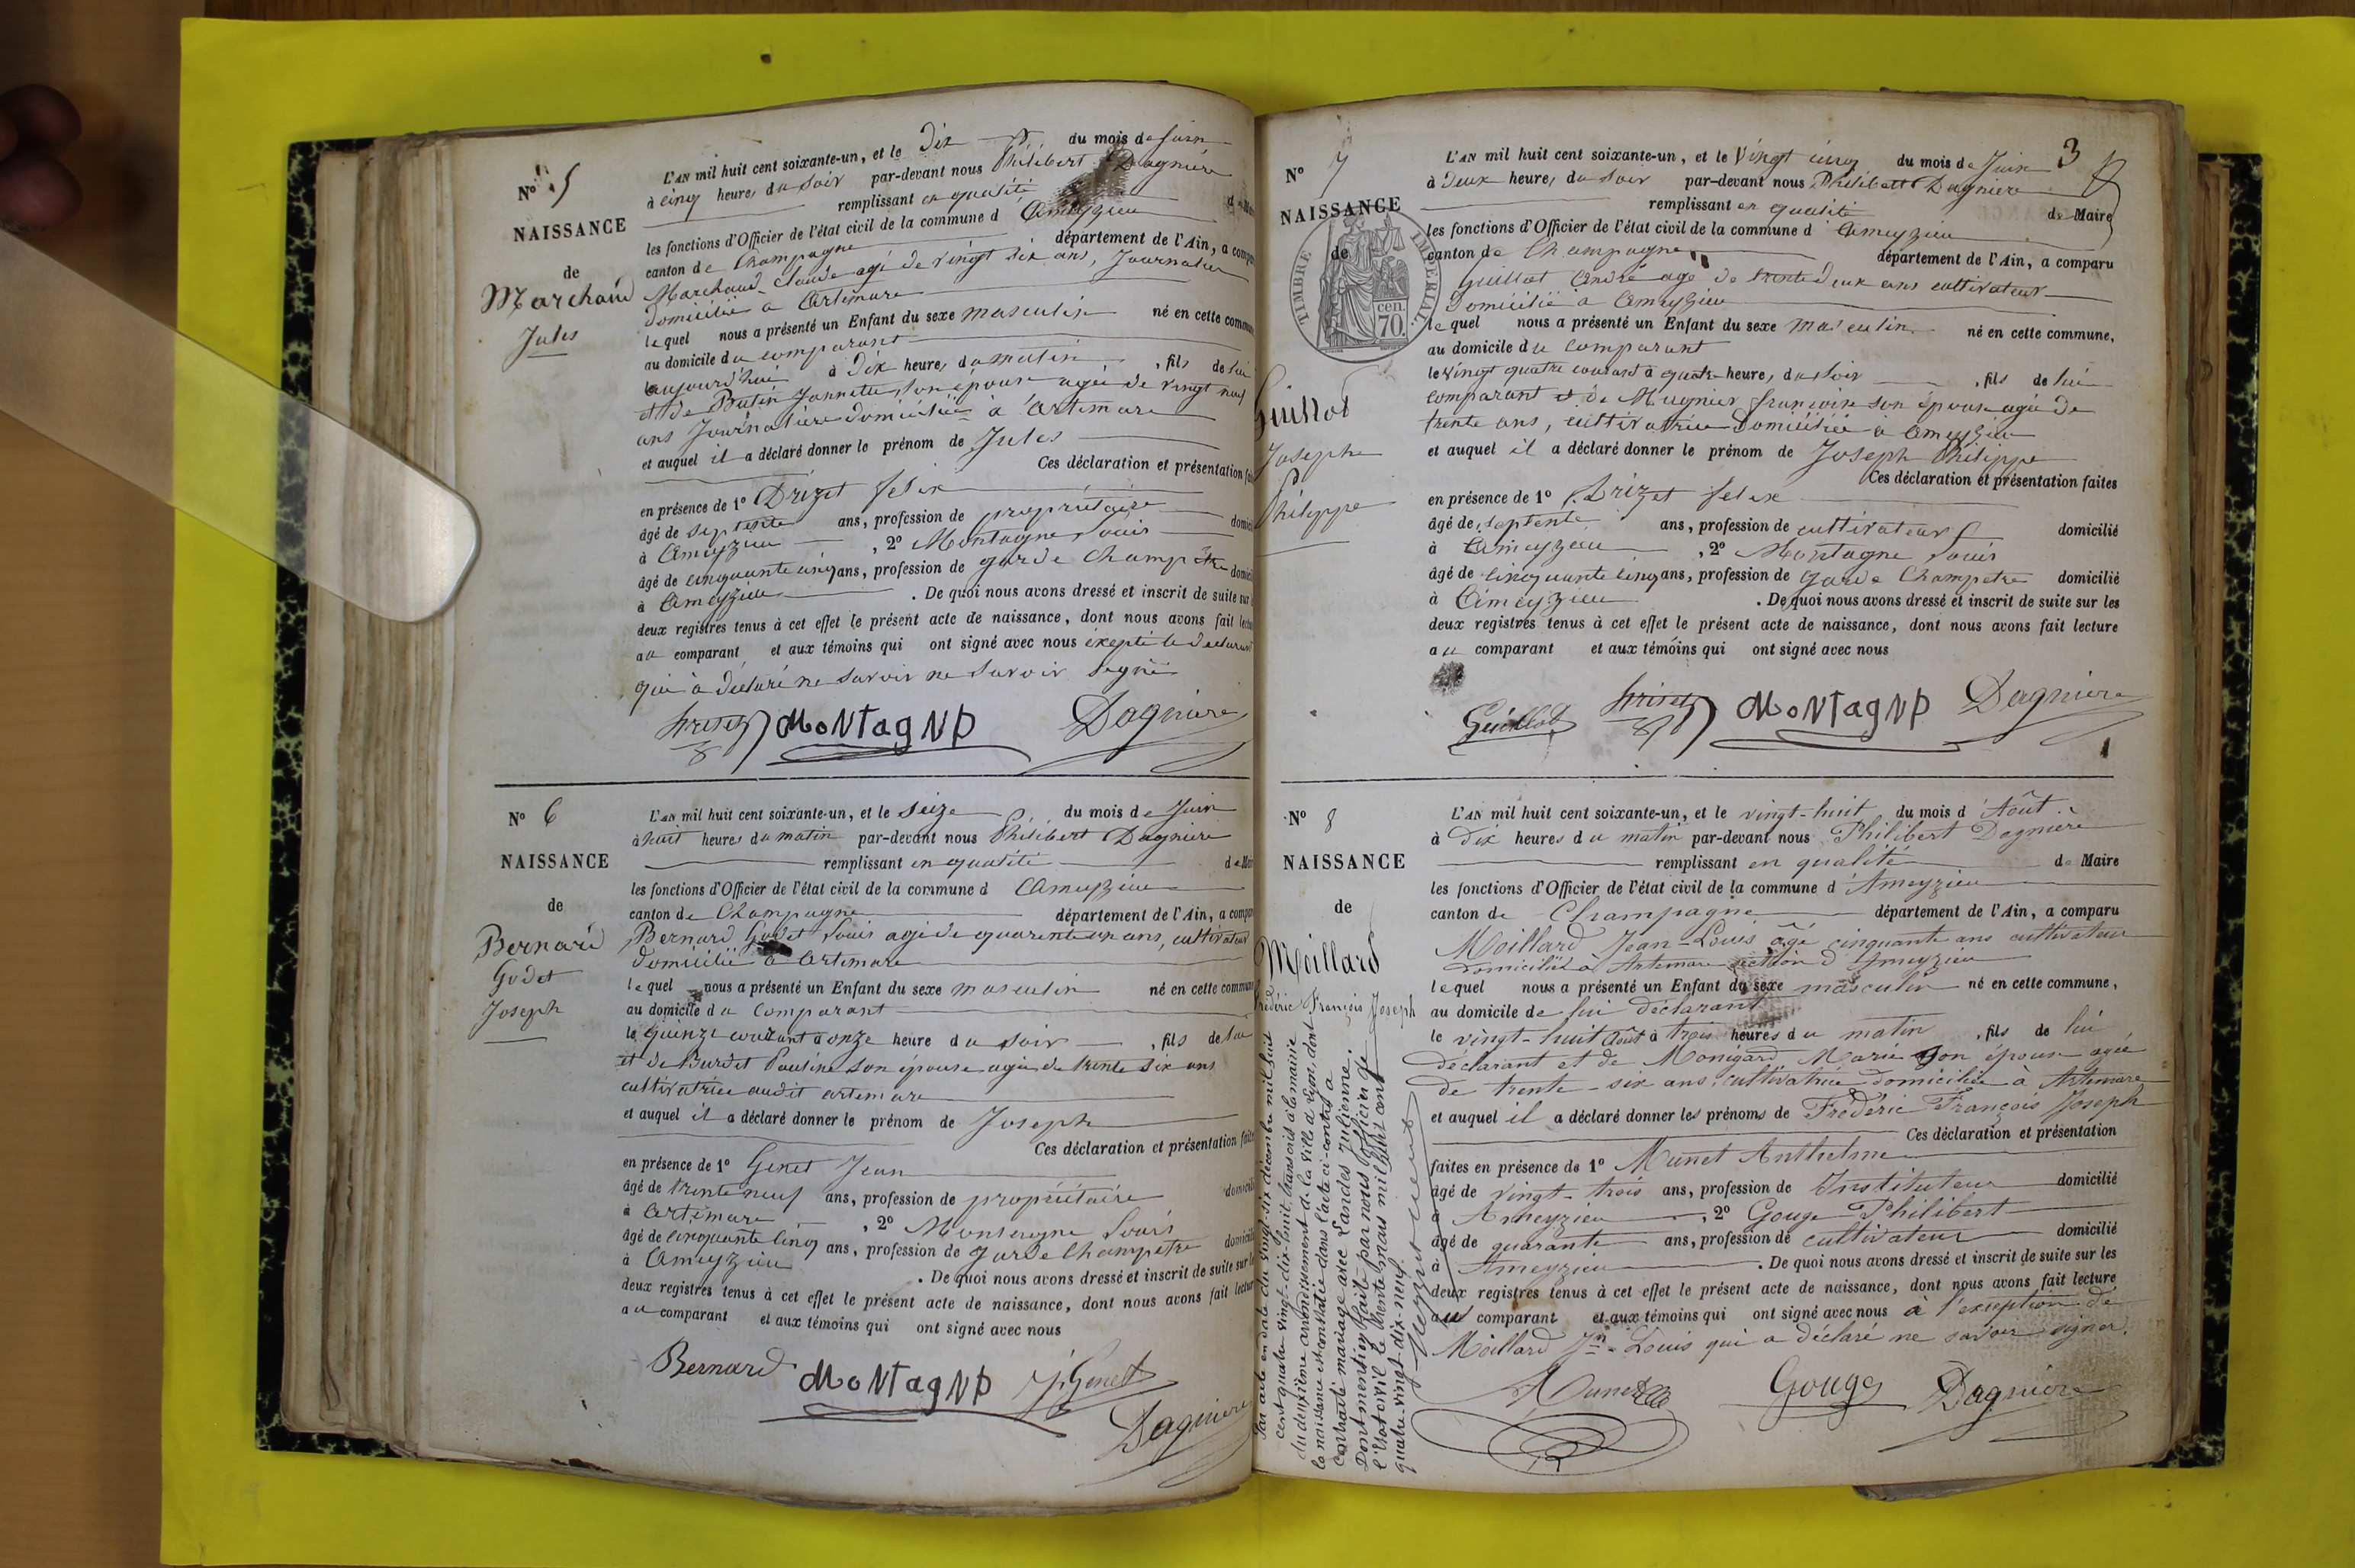 N° 5
NAISSANCE
de
Marchand
Jules
L'AN mil huit cent soixante-un, et le Dix du mois de Juin
à cinq heures du soir par-devant nous Philibert Dagnière
remplissant en qualité
les fonctions d'Officier de l'état civil de la commune d Ameyzieu
canton de Champagne département de l'Ain, a
Marchand Claude agé de vingt six ans, Journalier
domicilié a Artemare
lequel nous a présenté un Enfant du sexe masculin né en cette
au domicile du comparant
aujourd'hui à Dix heures du matin, fils de lui
et de Butin Jannette son épouse agée de vingt neuf
ans Journalière domiciliée à Artemare
et auquel il a déclaré donner le prénom de Jules
Ces déclaration et présentation
en présence de 1° Drizet felix
âgé de septente ans, profession de propriétaire
à Ameyzieu, 2° Montagne Louis
âgé de cinquante cinq ans, profession de garde Champêtre
à Ameyzieu. De quoi nous avons dressé et inscrit de suite sur
deux registres tenus à cet effet le présent acte de naissance, dont nous avons fait
au comparant et aux témoins qui ont signé avec nous éxepté le declarant
qui à declaré ne savoir ne savoir signé
MoNTagNP Dagnière
N° 6
NAISSANCE
de
Bernard
Godet
Joseph
L'AN mil huit cent soixante-un, et le seize du mois de Juin
à huit heures du matin par-devant nous Philibert Dagnière
remplissant en qualité
les fonctions d'Officier de l'état civil de la commune d Ameyzieu
canton de Champagne département de l'Ain, a
Bernard Godet Louis agé de quarente un ans, cultivateur
domicilié a Artemare
lequel nous a présenté un Enfant du sexe masculin né en cette
au domicile du comparant
le quinze courant à onze heure du soir, fils de lui
et de Burdet Pauline son épouse agée de trente six ans
cultivatrice audit artemare
et auquel il a déclaré donner le prénom de Joseph
Ces déclaration et présentation
en présence de 1° Genet Jean
âgé de trente neuf ans, profession de propriétaire
à Artemare, 2° Louis
âgé de cinquante cinq ans, profession de garde Champetre
à Ameyzieu. De quoi nous avons dressé et inscrit de suite sur
deux registres tenus à cet effet le présent acte de naissance, dont nous avons fait
au comparant et aux témoins qui ont signé avec nous
Bernard MoNTagNP J. Genet
Dagnière
3
N° 7
NAISSANCE
de
TIMBRE IMPERIAL
70 cen.
Guillot
Joseph
Philippe
L'AN mil huit cent soixante-un, et le Vingt cinq du mois de Juin
à Deux heures du soir par-devant nous Philibert Dagnière
remplissant en qualité de Maire
les fonctions d'Officier de l'état civil de la commune d Ameyzieu
canton de Champagne département de l'Ain, a comparu
Guillot André agé de trente deux ans cultivateur
Domicilié a Ameyzieu
lequel nous a présenté un Enfant du sexe masculin né en cette commune,
au domicile du comparant
le vingt quatre courant à quatre heures, du soir, fils de lui
comparant et de Mugnier françoise son épouse agée de
trente ans, cultivatrice domiciliée a Ameyzieu
et auquel il a déclaré donner le prénom de Joseph Philippe
Ces déclaration et présentation faites
en présence de 1° Drizet felix
âgé de septente ans, profession de cultivateur domicilié
à Ameyzieu, 2° Montagne Louis
âgé de cinquante cinq ans, profession de garde Champetre domicilié
à Ameyzieu. De quoi nous avons dressé et inscrit de suite sur les
deux registres tenus à cet effet le présent acte de naissance, dont nous avons fait lecture
au comparant et aux témoins qui ont signé avec nous
Guillot MoNTagNP Dagnière
N° 8
NAISSANCE
de
Moillard
Frédéric François Joseph
L'AN mil huit cent soixante-un, et le vingt-huit du mois d'Août
à Dix heures du matin par-devant nous Philibert Dagnière
remplissant en qualité de Maire
les fonctions d'Officier de l'état civil de la commune d'Ameyzieu
canton de Champagne département de l'Ain, a comparu
Moillard Jean-Louis âgé cinquante ans cultivateur
domicilié à Artemare section d'Ameyzieu
lequel nous a présenté un Enfant du sexe masculin né en cette commune,
au domicile de lui déclarant
le vingt-huit Août à trois heures du matin, fils de lui
déclarant et de Monigard Marie son épouse agée
de trente-six ans, cultivatrice domiciliée à Artemare
et auquel il a déclaré donner les prénoms de Frédéric François Joseph
Ces déclaration et présentation
faites en présence de 1° Munet Anthelme
âgé de vingt-trois ans, profession de Instituteur domicilié
à Ameyzieu, 2° Gouge Philibert
âgé de quarante ans, profession de cultivateur domicilié
à Ameyzieu. De quoi nous avons dressé et inscrit de suite sur les
deux registres tenus à cet effet le présent acte de naissance, dont nous avons fait lecture
au comparant et aux témoins qui ont signé avec nous à l'exception de
Moillard Jn-Louis qui a déclaré ne savoir signer.
Munet Gouge Dagnière
Par acte en date du vingt-six décembre mil huit
cent quatre-vingt-dix-huit, transcris à la mairie
du deuxième arrondissement de la ville de Lyon, dont
la naissance est constatée dans l'acte ci-contre a
contracté mariage avec Landes Julienne.
Dont mention faite par nous Officier de
l'état civil le trente mars mil huit cent
quatre-vingt-dix-neuf.